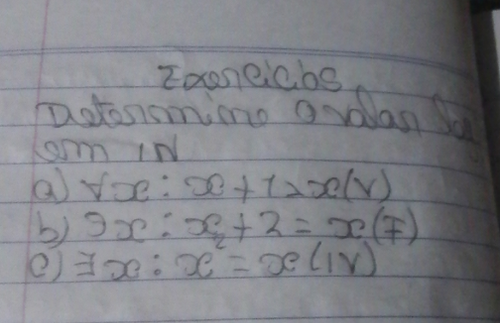 Exercicios
Determine o valor
em IN
a) ∀x : x + 1 > x (V)
b) ∃x : x + 2 = x (F)
c) ∃x : x² = x (V)